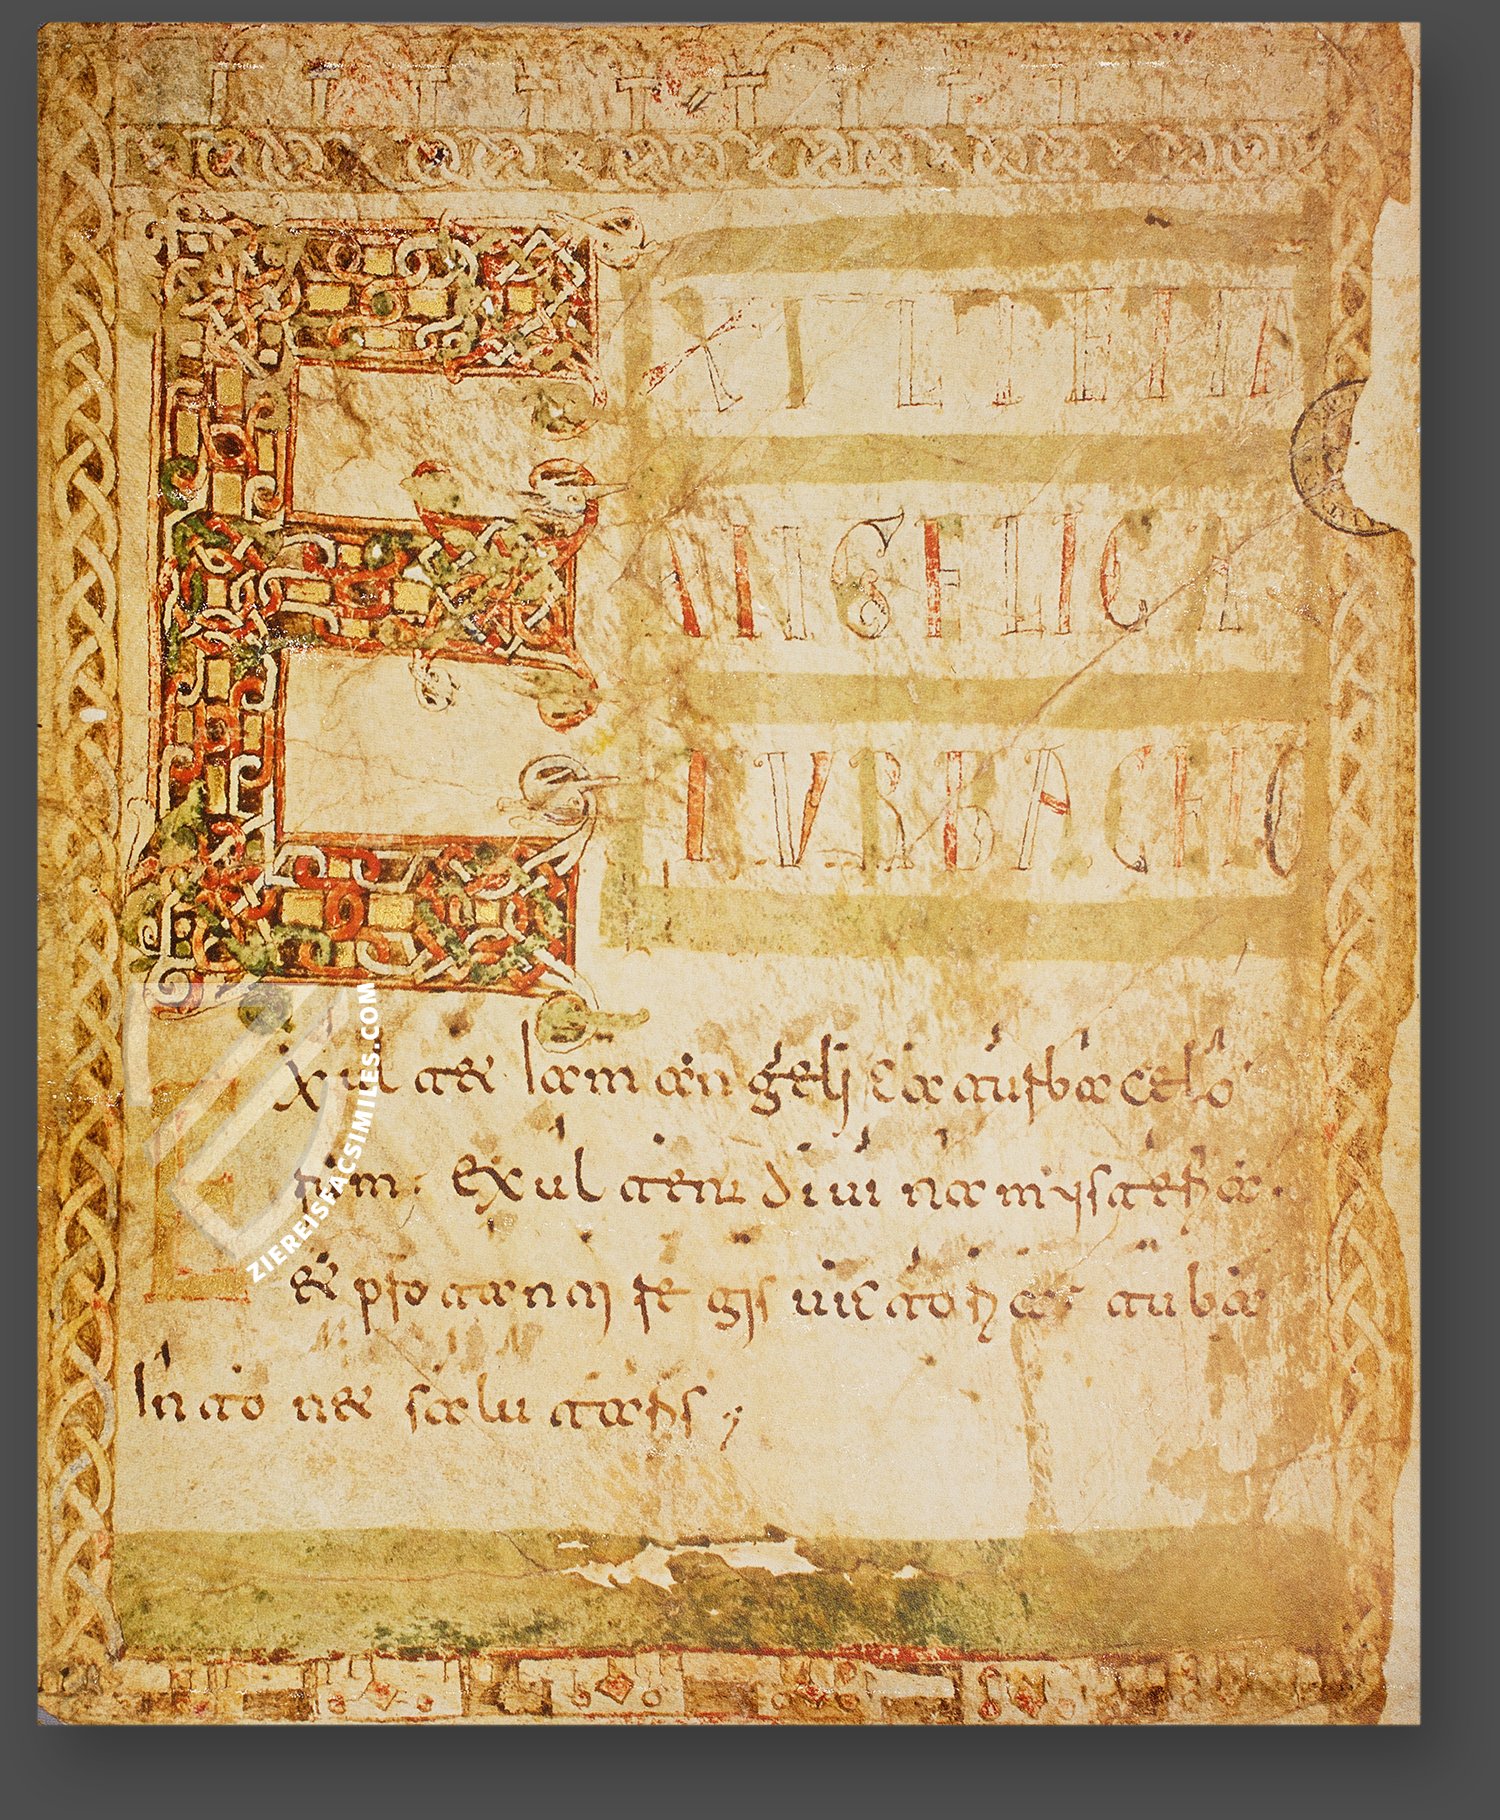 E
XULTETIA
ANGELICA
TURBACELO
Exultet iam angelica turba celo
rum. Exultent divina mysteria.
Et pro tanti regis victoria tuba
Intonet salutaris;
ZIEREISFACSIMILES.COM